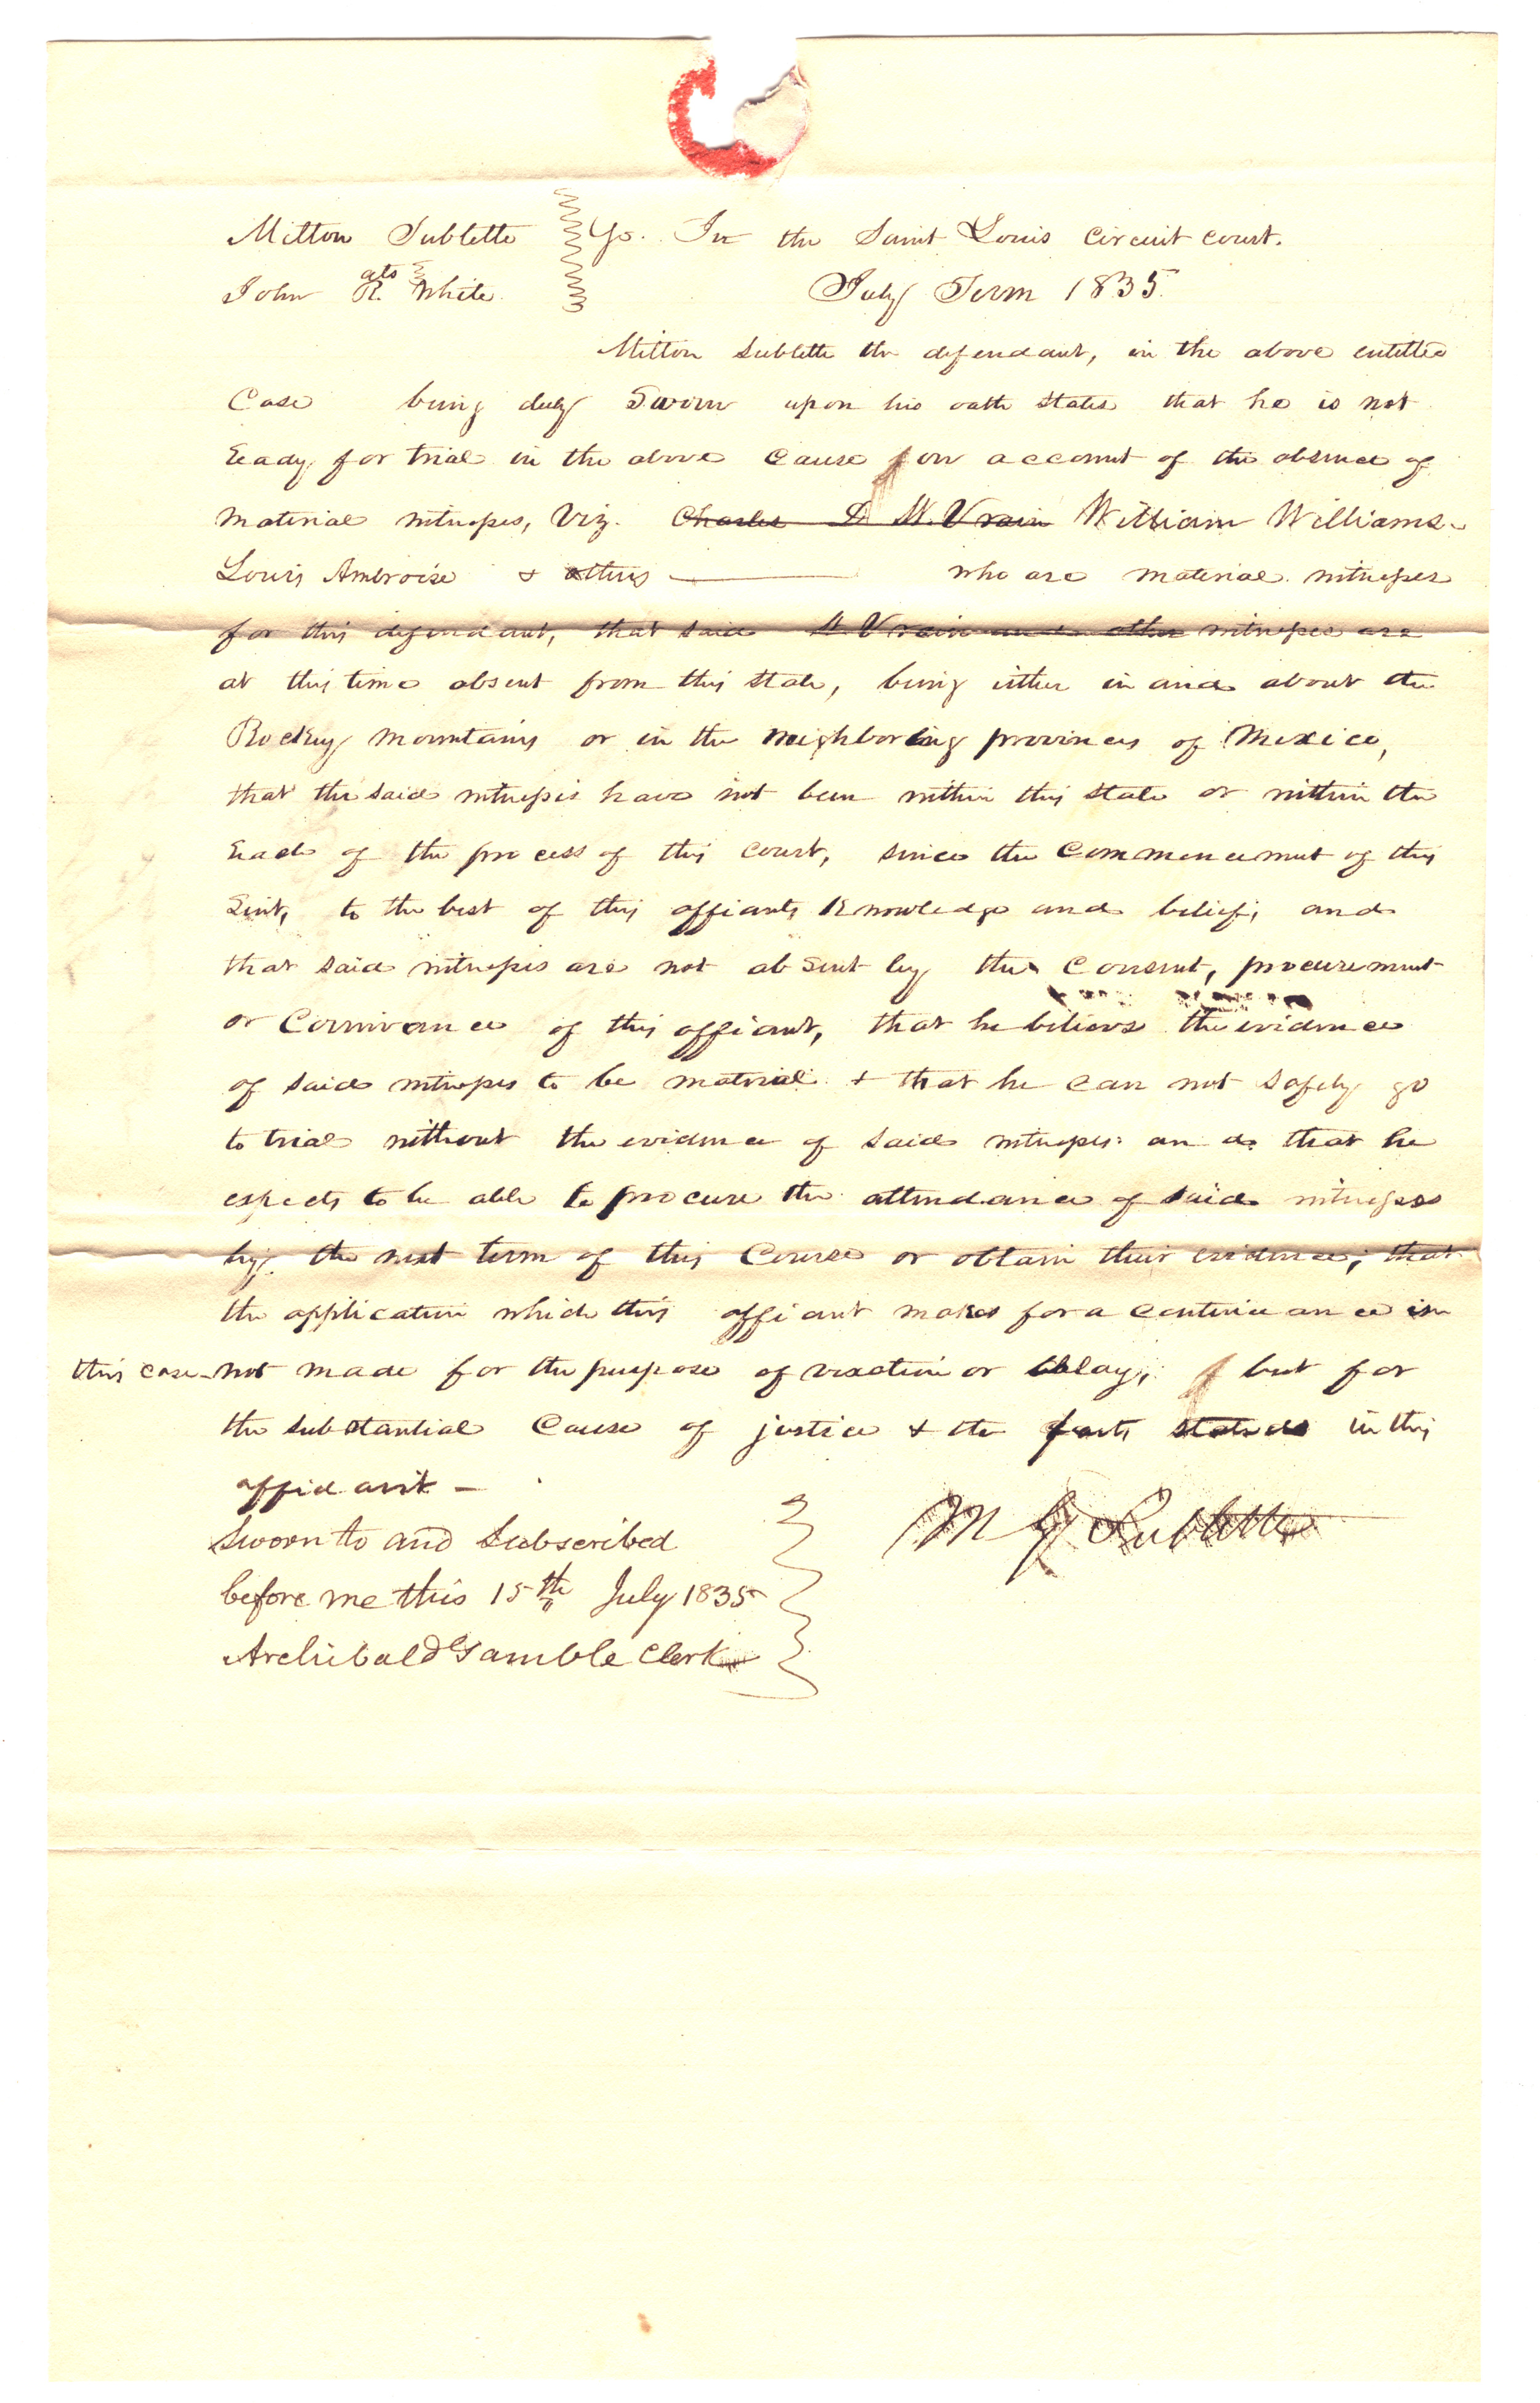 Milton Sublette } In the Saint Louis Circuit Court.
ats
John R. White } July Term 1835.
Milton Sublette the defendant, in the above entitled
Case being duly Sworn upon his oath states that he is not
ready for trial in the above Cause on account of the absence of
material witnesses, Viz. Charles St. Vrain William Williams
Louis Ambroise & others — who are material witnesses
for this defendant, that said St. Vrain and other witnesses are
at this time absent from this state, being either in and about the
Rocky mountains or in the neighboring provinces of Mexico,
that the said witnesses have not been within this state or within the
reach of the process of this Court, since the Commencement of this
Suit, to the best of this affiants Knowledge and belief, and
that said witnesses are not absent by the Consent, procurement
or Connivance of this affiant, that he believes the evidence
of said witnesses to be material & that he can not safely go
to trial without the evidence of said witnesses: and that he
expects to be able to procure the attendance of said witnesses
by the next term of this Court or obtain their evidence; that
the application which this affiant makes for a continuance in
this case not made for the purpose of vexation or delay, but for
the substantial Cause of justice & the facts stated in this
affidavit —
M G Sublette
Sworn to and Subscribed
before me this 15th July 1835
Archibald Gamble Clerk